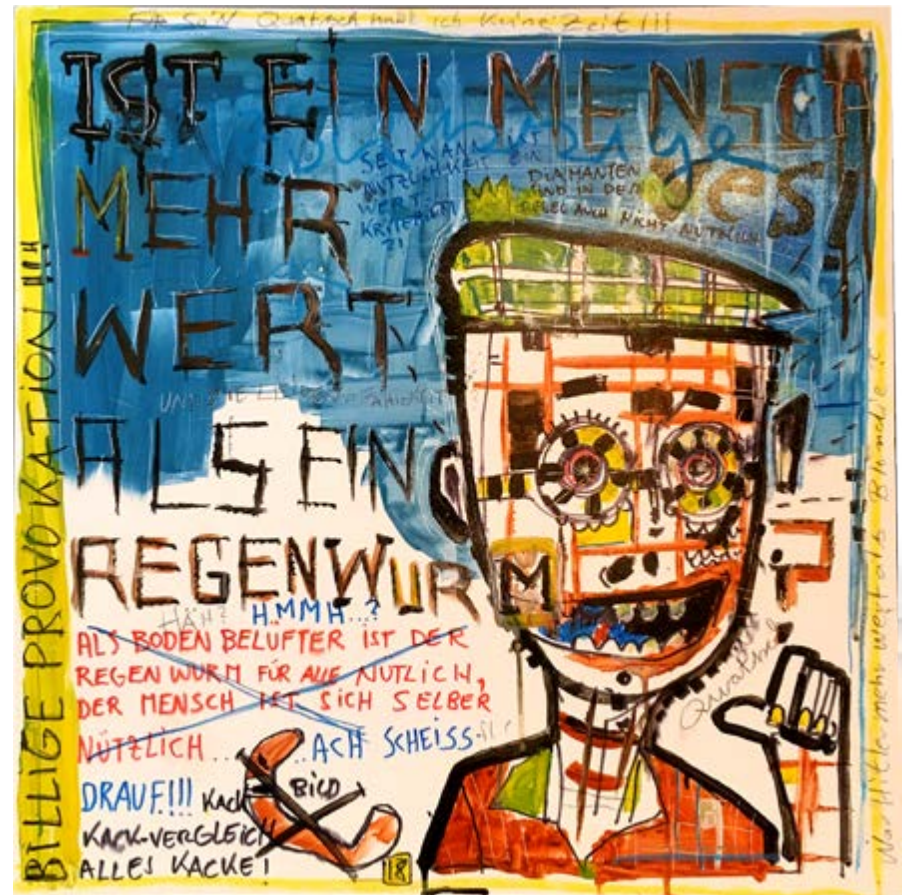 FÜR SO'N Quatsch hab ich keine Zeit!!!
IST EiN MENSCH
MEHR
WERT,
ALS EIN
REGENWURM
?
SEIT WANN IST
NÜTZLICHKEIT EIN
WERT
KRITERIUM
?!
DIAMANTEN
SIND IN DER
REGEL AUCH NICHT NÜTZLICH
YES!
UND DIE
HÄH?
HMMH...?
ALS BODEN BELÜFTER IST DER
REGENWURM FÜR ALLE NUTLICH,
DER MENSCH IST SICH SELBER
NÜTZLICH... ...ACH SCHEISS
DRAUF!!! KACK
BILD
KACK-VERGLEICH
ALLES KACKE!
18
Quatsch
BILLIGE PROVOKATION!!!!
War Hitler mehr wert als Blomedie?